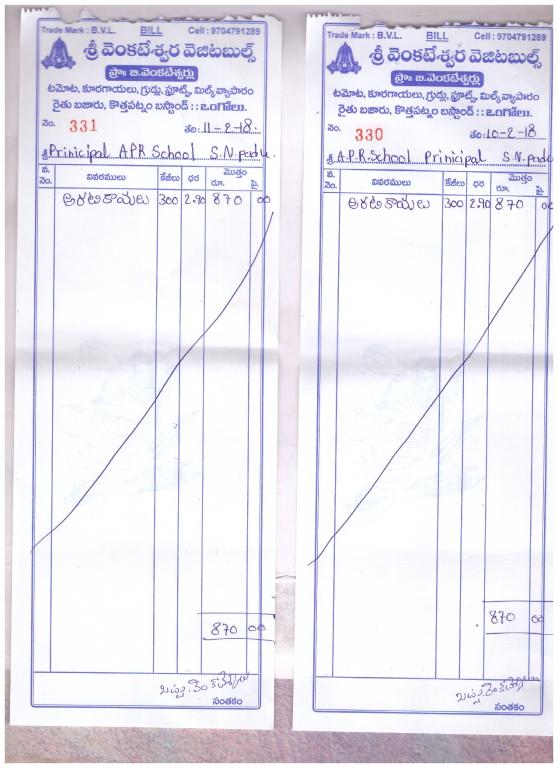 Trade Mark : B.V.L. BILL Cell : 9704791289
శ్రీ వెంకటేశ్వర వెజిటబుల్స్
ప్రొః బి.వెంకటేశ్వర్లు
టమోట, కూరగాయలు, గ్రుడ్లు, ఫ్రూట్స్, మిల్క్ వ్యాపారం
రైతు బజారు, కొత్తపట్నం బస్టాండ్ : : ఒంగోలు.
నెం. 331 తేది: 11-2-18.
శ్రీ Prinicipal APR School S.N. padu.
వ. నెం. వివరములు కేజీలు ధర మొత్తం రూ. పై.
అరటికాయలు 300 2.90 870 00
870 00
సంతకం
Trade Mark : B.V.L. BILL Cell : 9704791289
శ్రీ వెంకటేశ్వర వెజిటబుల్స్
ప్రొః బి.వెంకటేశ్వర్లు
టమోట, కూరగాయలు, గ్రుడ్లు, ఫ్రూట్స్, మిల్క్ వ్యాపారం
రైతు బజారు, కొత్తపట్నం బస్టాండ్ : : ఒంగోలు.
నెం. 330 తేది: 10-2-18
శ్రీ A.P.R. School Prinicipal S.N. padu
వ. నెం. వివరములు కేజీలు ధర మొత్తం రూ. పై.
అరటికాయలు 300 2.90 870 00
870 00
సంతకం